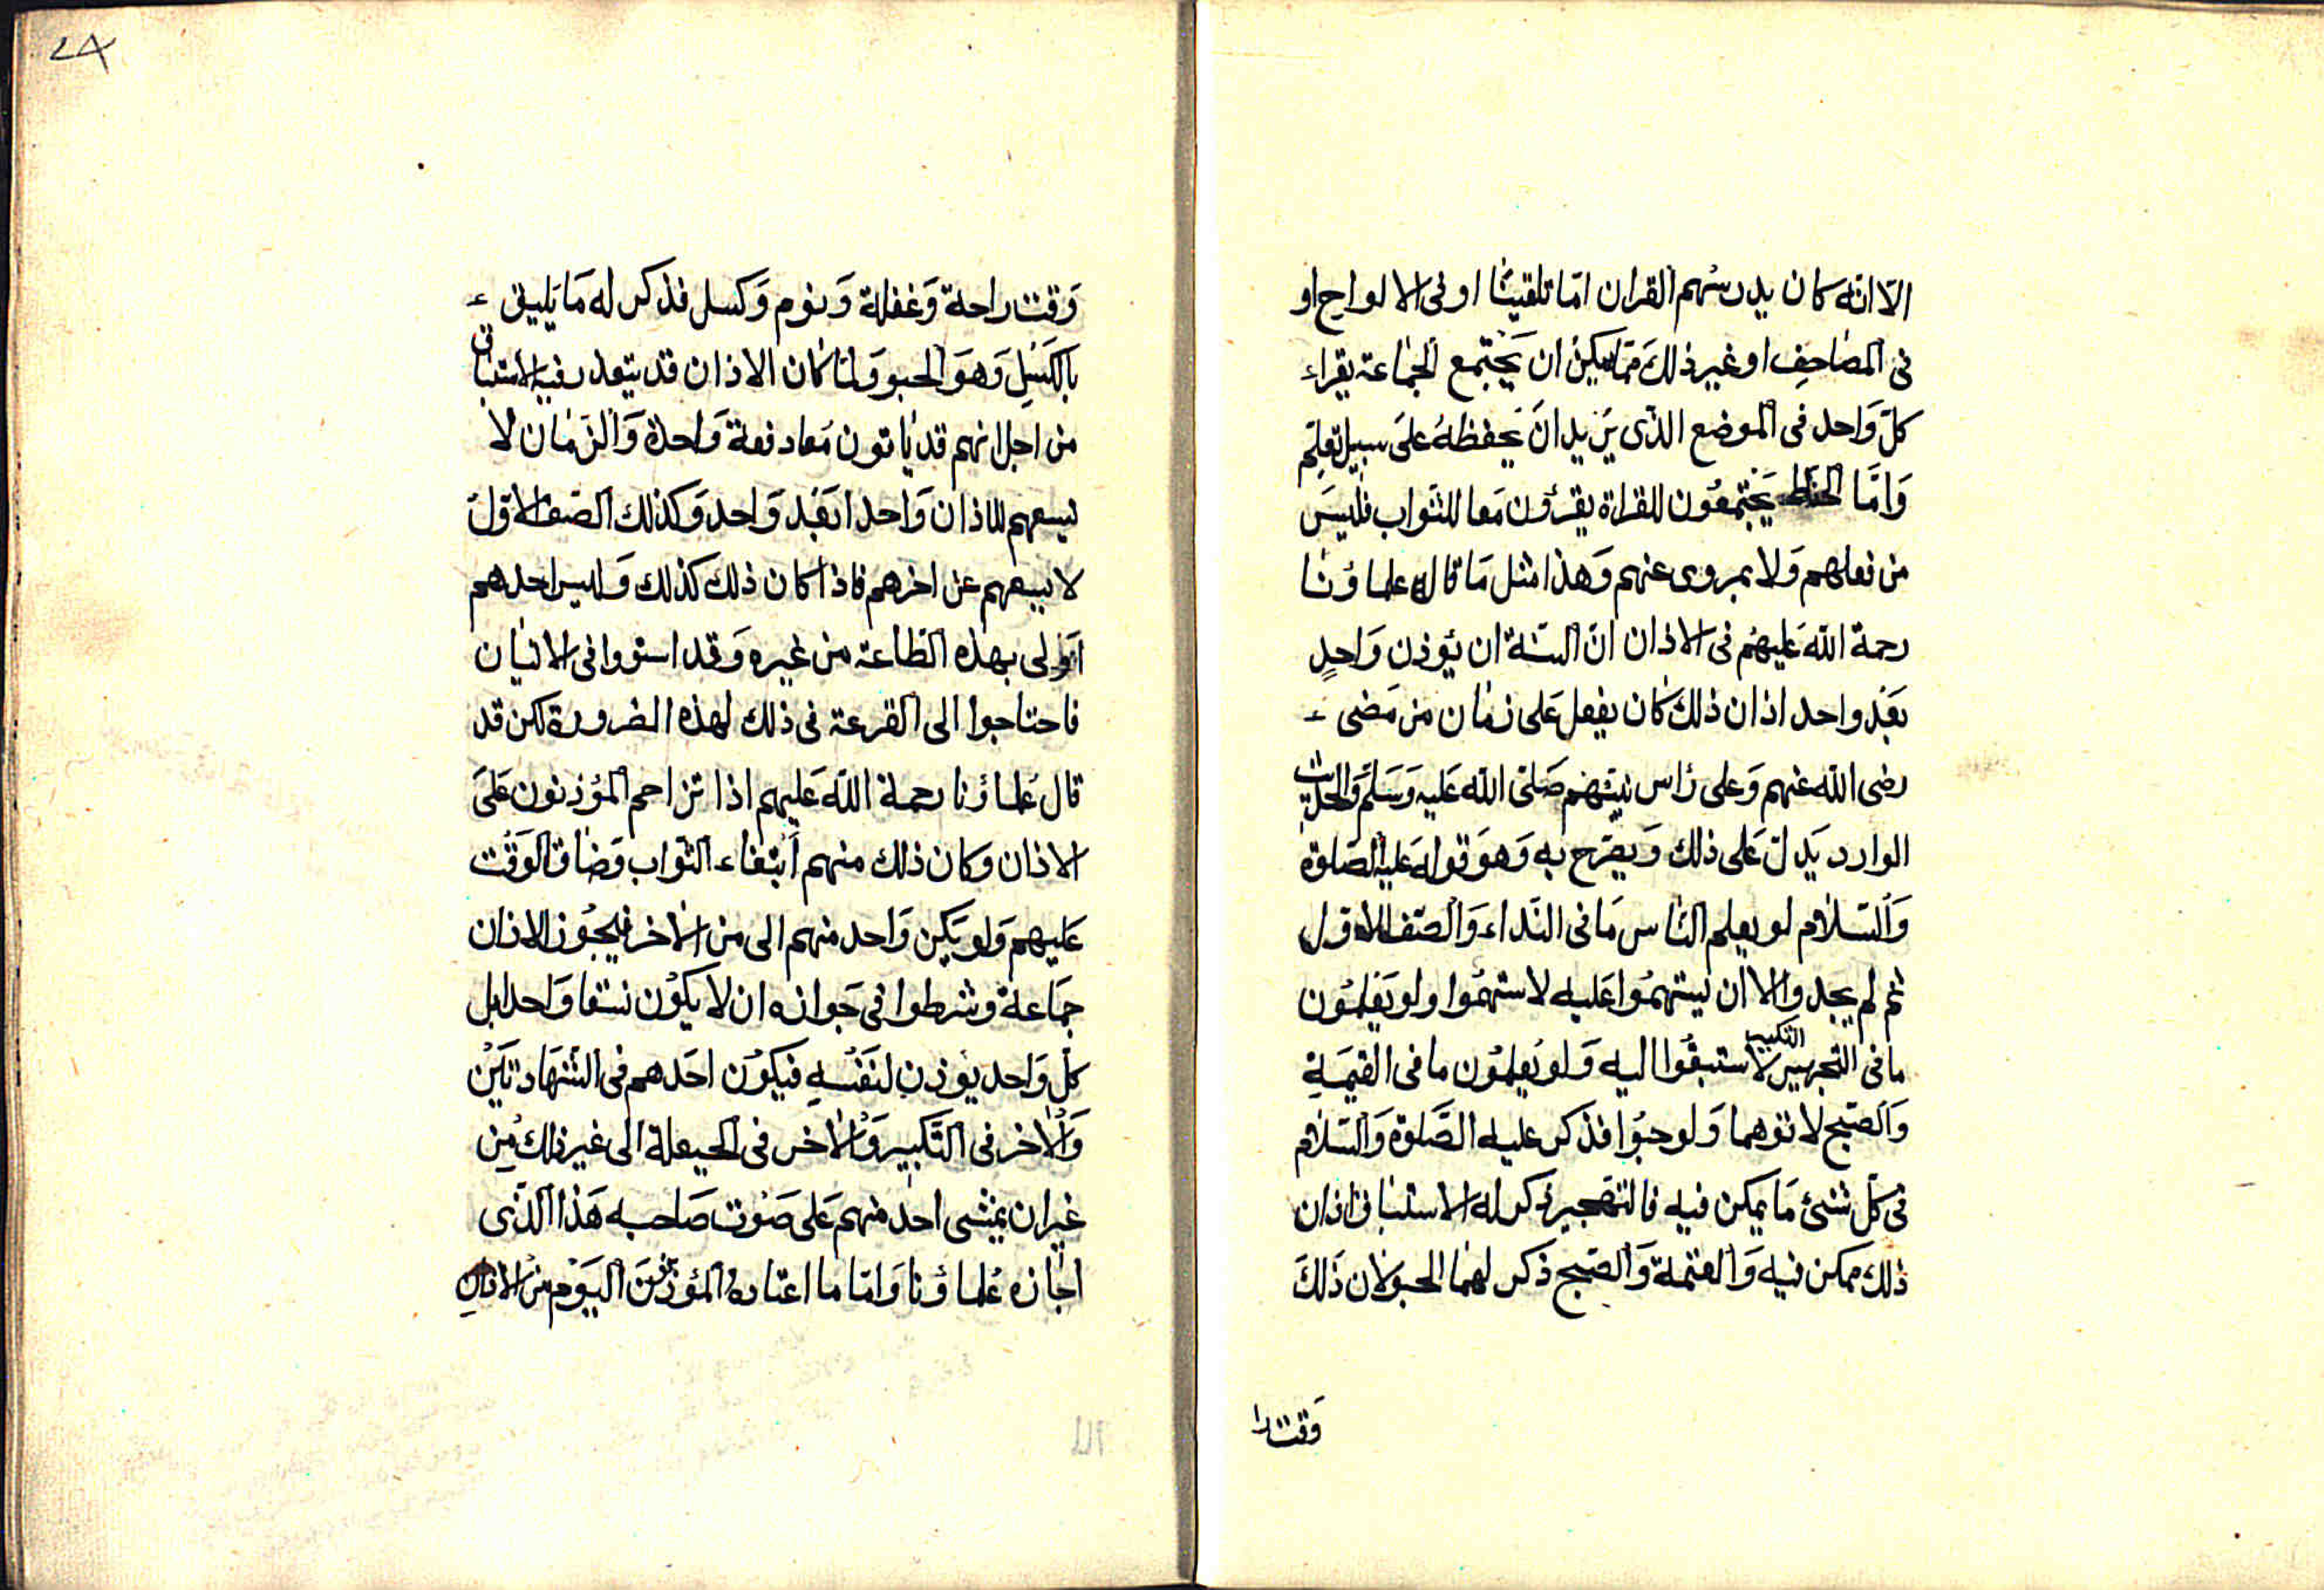 الّا انّه كان يدرسُهم القران امّا تلقيْنا او فى الالواح او
فى المصَاحِف او غير ذلكَ ممّا يمكِن ان يجْتمع الجماعة يقراء
كلّ وَاحد فى الموضع الذّى يَريد انَ يحفظهُ علىَ سبيل تعلِّم
وَامّا يَجْتمعُون للقراة يقرؤن مَعا للثّواب فليسَ
من فعلهم وَلا بمروى عنهم وَهذا مثل مَا قاله علماؤنا
رحمة الله عَليهُم فى الاذان انّ السّنة ان يُوذن وَاحدٍ
بَعْد واحد اذ ان ذلكَ كان يفعل عَلى زمان من مَضى
رضى الله عنهم وَعلى رَاس نبيّهم صَلّى الله عَليه وَسَلّم وَالحَديث
الوارد يَدلّ عَلى ذلك وَيصَرّح به وَهوَ قوله عَليه الصّلوة
وَالسّلام لو يعلم النّاس مَا فى النّداء وَالصّف الاوّل
ثم لم يجدوا الا ان يستهمُوا عَليه لاستهمُوا ولو يَعْلمُون
التكبير
ما فى التّجهير لاستبقُوا اليه وَلو يَعلمُون ما فى القيمَةِ
وَالصّبح لاتوهما وَلو حبْوا فذكر عليه الصَّلوة وَالسّلام
فى كلّ شئ مَا يمكن فيه فالتهجير ذكر له الاستباق اذ ان
ذلك ممكن فيه وَالعتمة وَالصّبح ذكر لهما الحبو لان ذَلكَ
وَقت را
٢٨
وَقت راحة وَغفلة وَنوم وَكسل فذكر له مَا يَليق
بالكَسَل وَهوَ الحبو وَلمّا كان الاذان قد يتعذر فيه الاستباق
من اجل انهم قد يَاتون مَعا دفعة وَاحدة وَالزّمان لا
يسعهم للاذان وَاحدا بَعْد وَاحد وَكذلك الصّف الاوّل
لا يسعهم عن اخرهم فاذا كان ذلك كذلك وَليس احدهم
اَولى بهذه الطّاعة من غيره وَقد استووا فى الاتيان
فاحتاجوا الى القرعة فى ذلك لهذه الضرورة لكن قد
قال عُلماؤنا رحمة الله عَليهم اذا تزاحم المؤذنون عَلىَ
الاذان وكان ذلك منهم ابْتغاء الثّواب وَضاق الوَقْت
عَليهم وَلو يَكن وَاحد منهم الى من الاخر فيجُوز الاذان
جمَاعة وشرطوا فى جَوازه ان لا يكوْن نسقا وَاحدا بل
كلّ وَاحد يوْذن لنَفْسهِ فيكوْن احَدهم فى الشّهَادتيْن
وَالاخر فى التّكبير وَالاخر فى الحيعلة الى غير ذلكَ مُِن
غيران يمْشى احد منهم عَلى صَوْت صَاحبه هَذا الذّى
اجَازه عُلماؤنا وَامّا ما اعتاده المؤذنينَ اليَوْم من الاذان